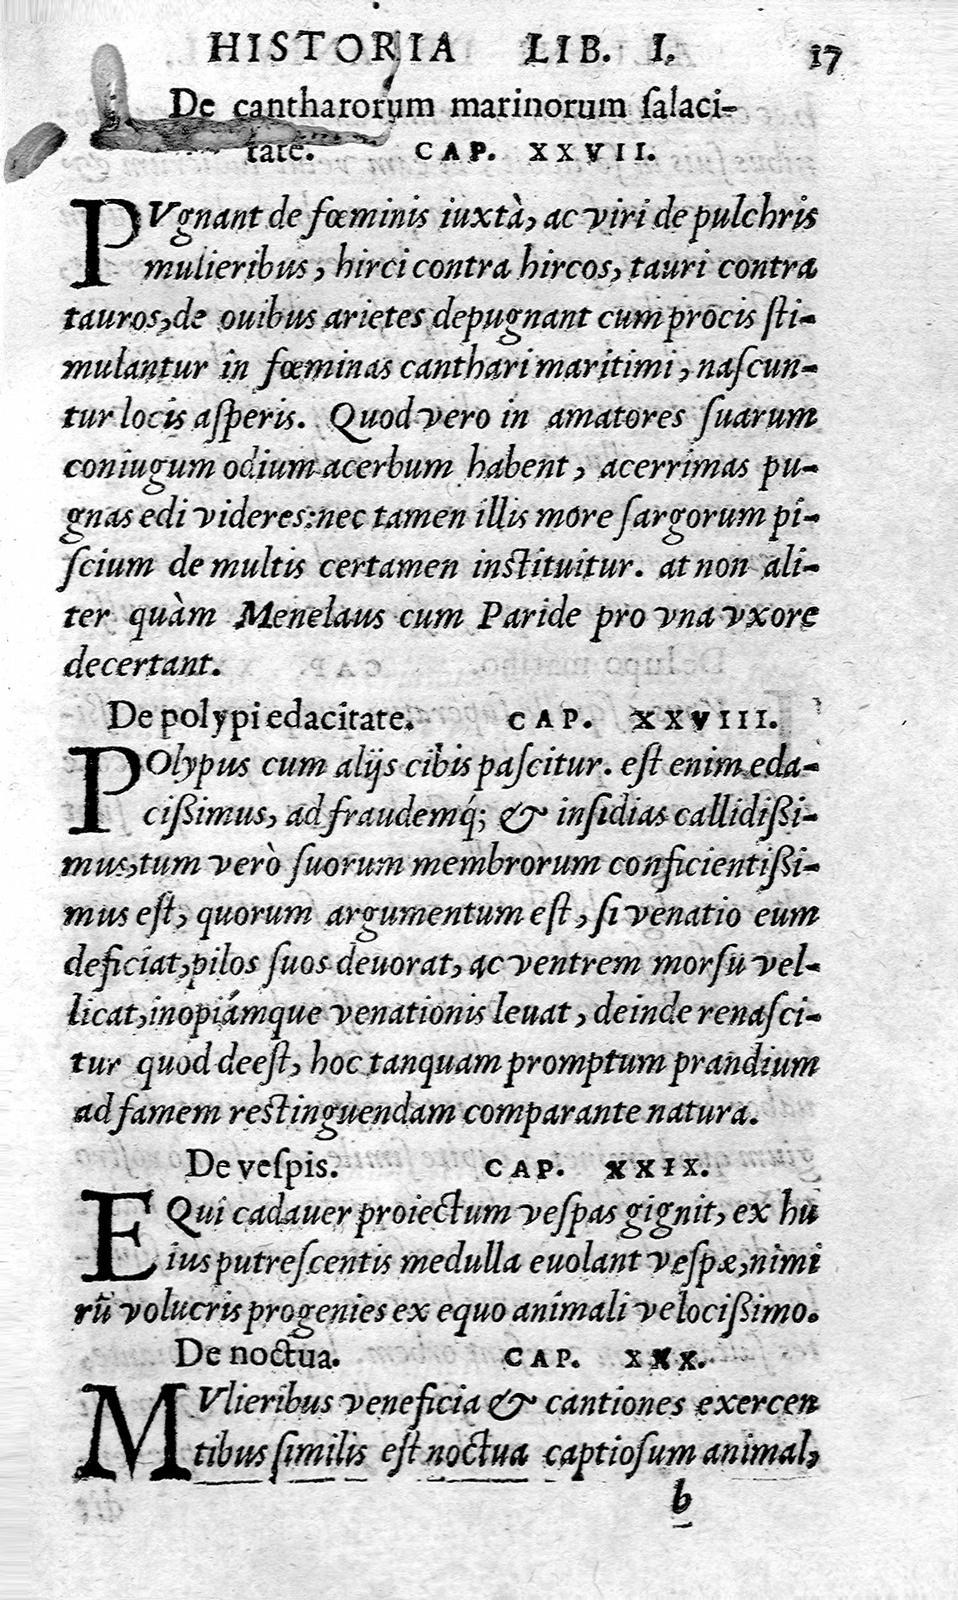 HISTORIA LIB. I. 17
De cantharorum marinorum ſalaci-
tate. CAP. XXVII.
PVgnant de fœminis iuxtà, ac viri de pulchris
mulieribus, hirci contra hircos, tauri contra
tauros, de ouibus arietes depugnant cum procis ſti-
mulantur in fœminas canthari maritimi, naſcun-
tur locis aſperis. Quod vero in amatores ſuarum
coniugum odium acerbum habent, acerrimas pu-
gnas edi videres: nec tamen illis more ſargorum pi-
ſcium de multis certamen inſtituitur. at non ali-
ter quàm Menelaus cum Paride pro vna vxore
decertant.
De polypi edacitate. CAP. XXVIII.
POlypus cum alijs cibis paſcitur. eſt enim eda-
cißimus, ad fraudemq́; & inſidias callidißi-
mus, tum verò ſuorum membrorum conficientißi-
mus eſt, quorum argumentum eſt, ſi venatio eum
deficiat, pilos ſuos deuorat, ac ventrem morſu vel-
licat, inopiámque venationis leuat, deinde renaſci-
tur quod deeſt, hoc tanquam promptum prandium
ad famem reſtinguendam comparante natura.
De veſpis. CAP. XXIX.
EQui cadauer proiectum veſpas gignit, ex hu
ius putreſcentis medulla euolant veſpæ, nimi
rũ volucris progenies ex equo animali velocißimo.
De noctua. CAP. XXX.
MVlieribus veneficia & cantiones exercen
tibus ſimilis eſt noctua captioſum animal,
b